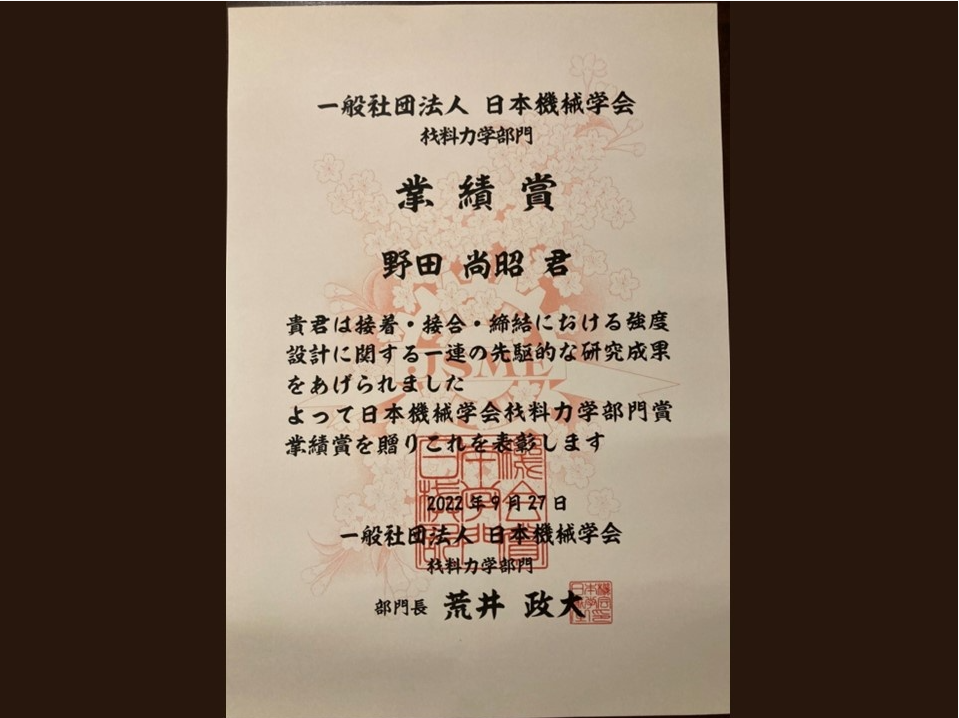 一般社団法人 日本機械学会
材料力学部門
業績賞
野田 尚昭 君
貴君は接着・接合・締結における強度
設計に関する一連の先駆的な研究成果
をあげられました
よって日本機械学会材料力学部門賞
業績賞を贈りこれを表彰します
2022年9月27日
一般社団法人 日本機械学会
材料力学部門
部門長 荒井 政大
JSME